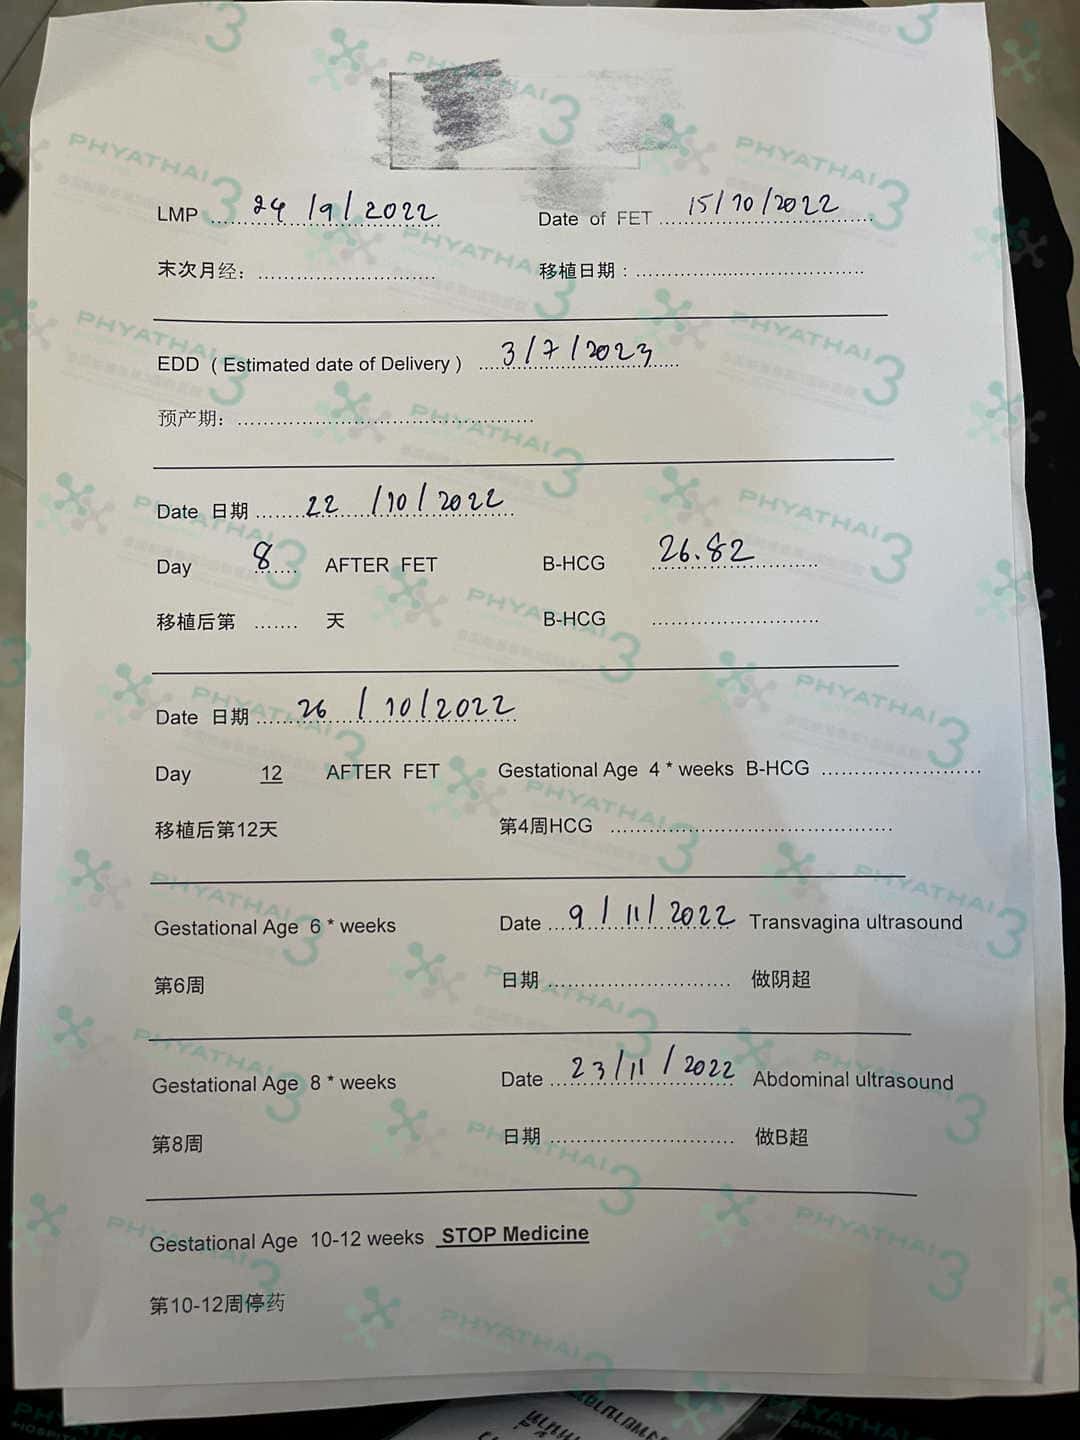 LMP 24 / 9 / 2022 Date of FET 15 / 10 / 2022
末次月经: 移植日期:
EDD ( Estimated date of Delivery ) 3 / 7 / 2023
预产期:
Date 日期 22 / 10 / 2022
Day 8 AFTER FET B-HCG 26.82
移植后第 天 B-HCG
Date 日期 26 / 10 / 2022
Day 12 AFTER FET Gestational Age 4 * weeks B-HCG
移植后第12天 第4周HCG
Gestational Age 6 * weeks Date 9 / 11 / 2022 Transvagina ultrasound
第6周 日期 做阴超
Gestational Age 8 * weeks Date 23 / 11 / 2022 Abdominal ultrasound
第8周 日期 做B超
Gestational Age 10-12 weeks STOP Medicine
第10-12周停药
PHYATHAI 3